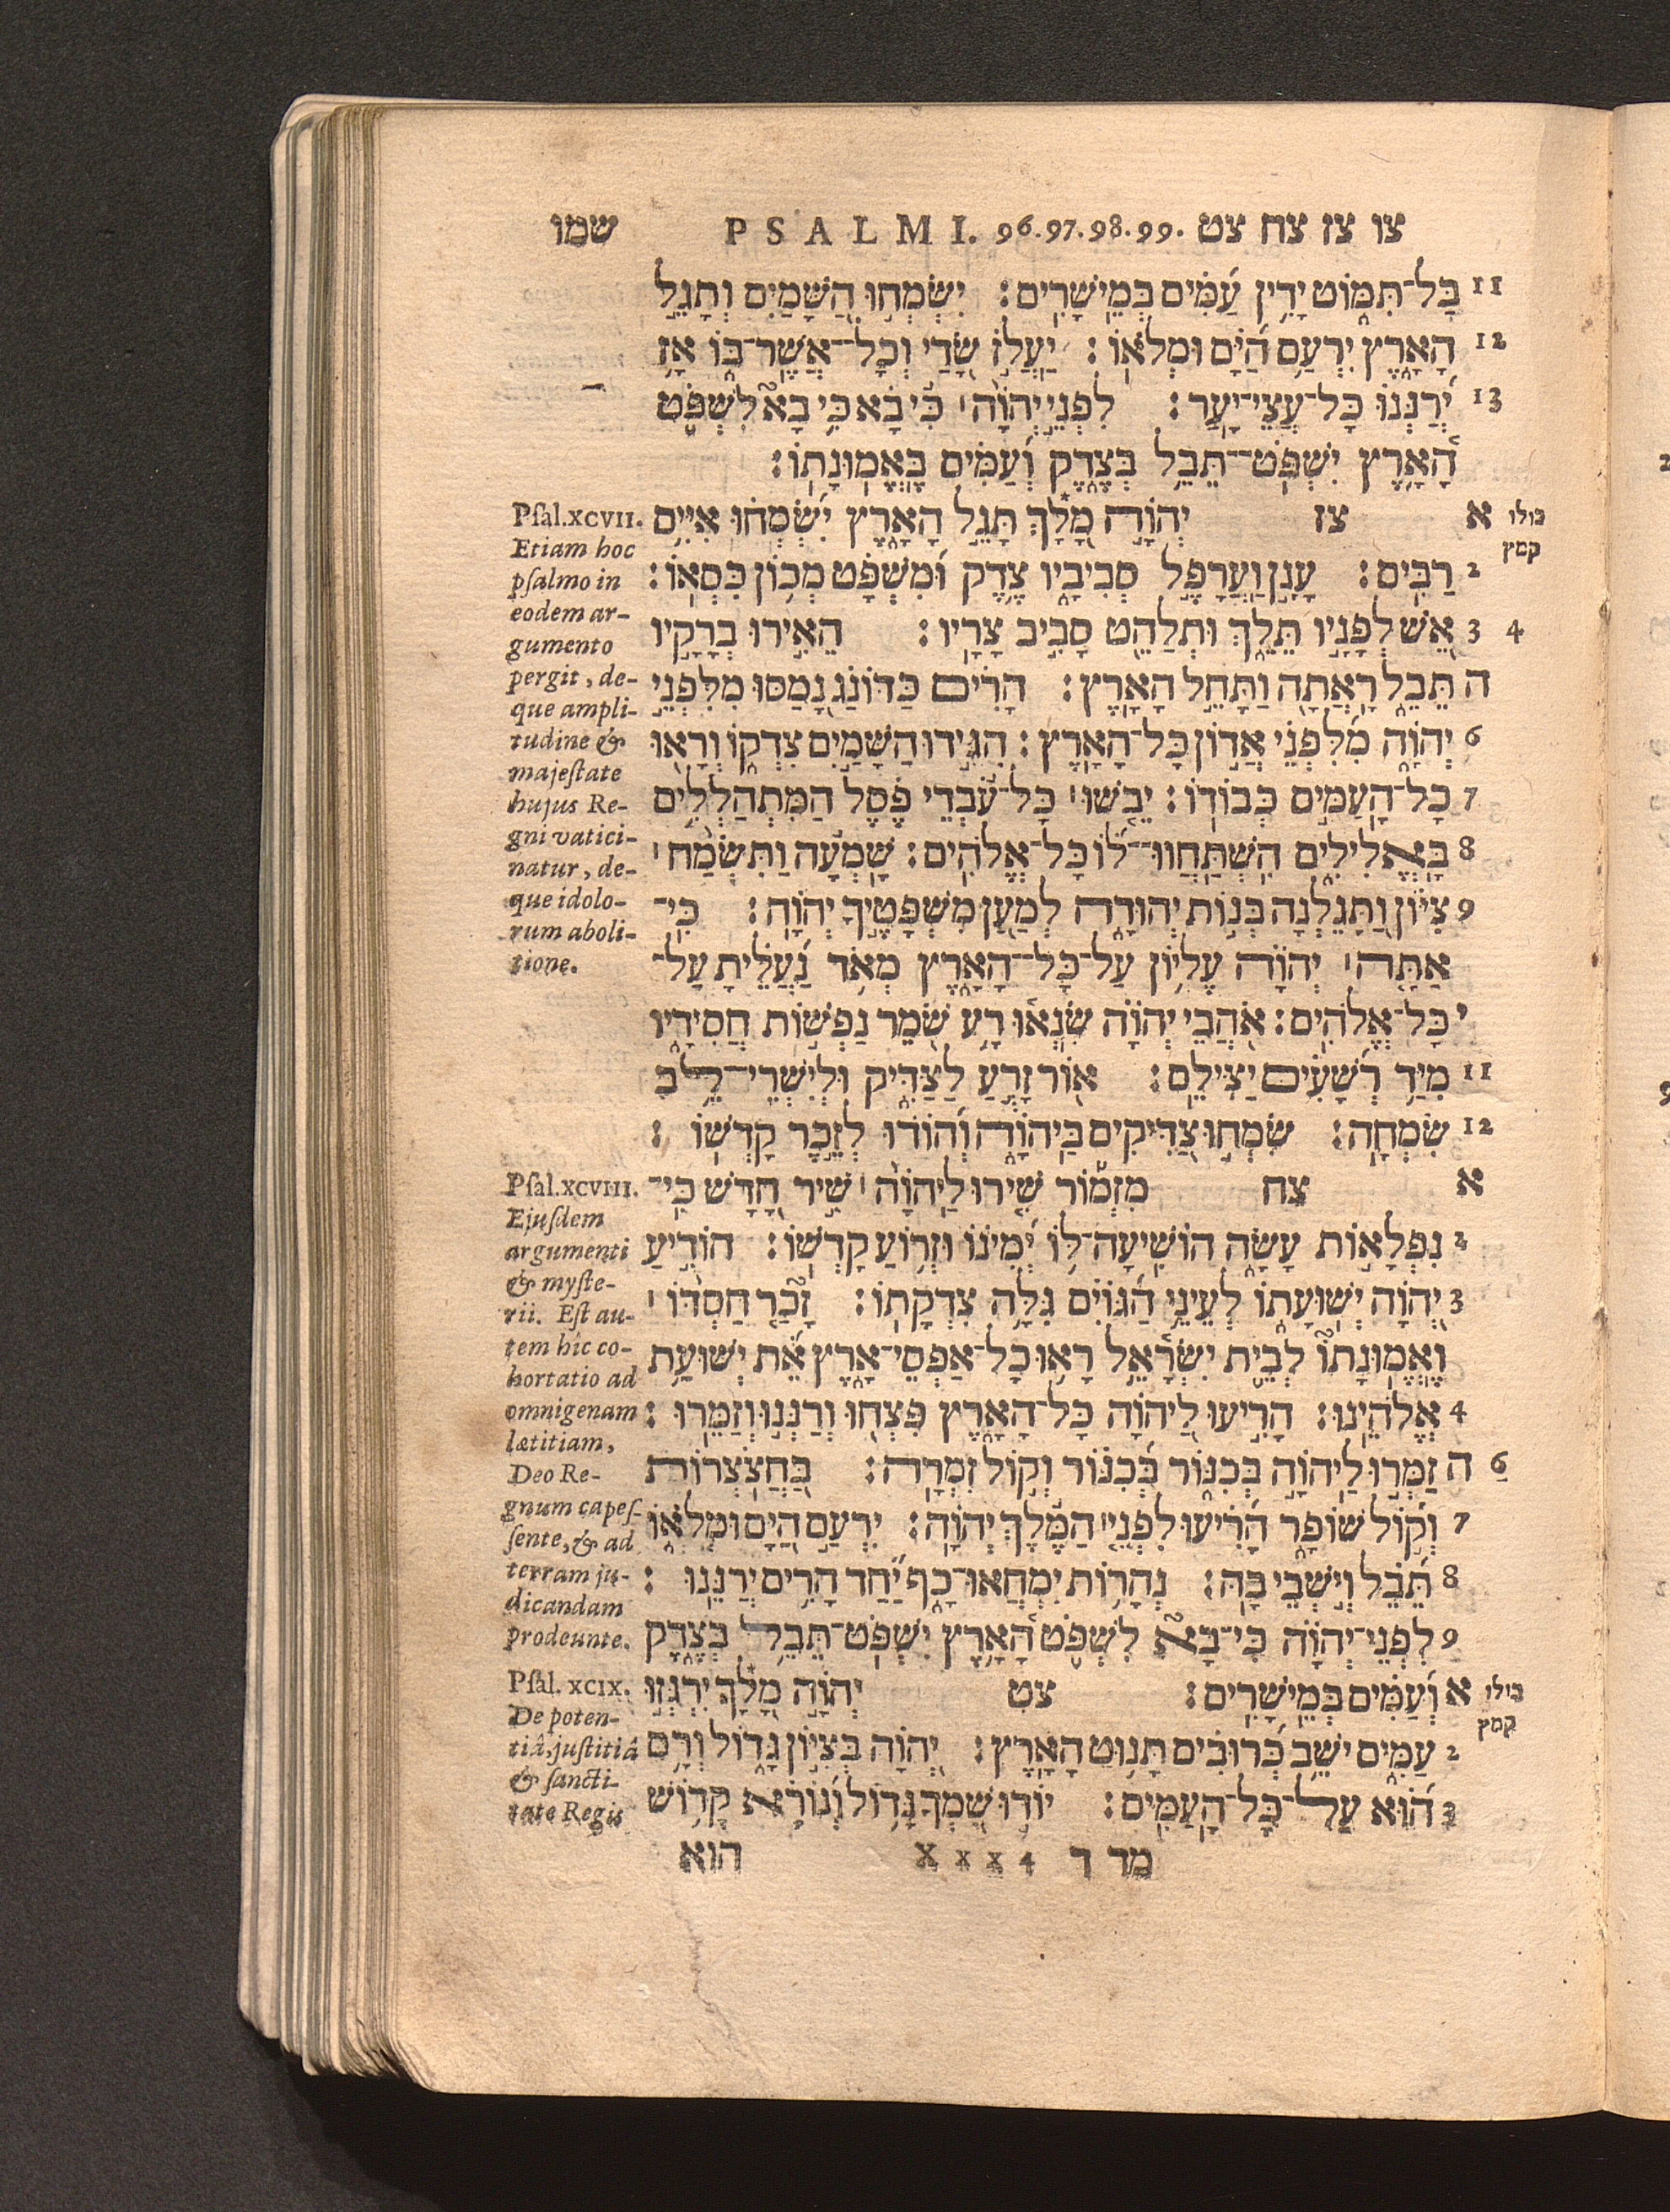 שמו P S A L M I. 96.97.98.99. צו צז צח צט
בַּל־תִּמּוֹט יָדִין עַמִּים בְּמֵישָׁרִים׃ יִשְׂמְחוּ הַשָּׁמַיִם וְתָגֵל 11
הָאָרֶץ יִרְעַם הַיָּם וּמְלֹאוֹ׃ יַעֲלֹז שָׂדַי וְכָל־אֲשֶׁר־בּוֹ אָז 12
יְרַנְּנוּ כָּל־עֲצֵי־יָעַר׃ לִפְנֵי יְהוָה׀ כִּי בָא כִּי בָא לִשְׁפֹּט 13
הָאָרֶץ יִשְׁפֹּט־תֵּבֵל בְּצֶדֶק וְעַמִּים בֶּאֱמוּנָתוֹ׃
א צז יְהוָה מָלָךְ תָּגֵל הָאָרֶץ יִשְׂמְחוּ אִיִּים
כולו קמץ
2 רַבִּים׃ עָנָן וַעֲרָפֶל סְבִיבָיו צֶדֶק וּמִשְׁפָּט מְכוֹן כִּסְאוֹ׃
3 4 אֵשׁ לְפָנָיו תֵּלֵךְ וּתְלַהֵט סָבִיב צָרָיו׃ הֵאִירוּ בְרָקָיו
ה תֵּבֵל רָאֲתָה וַתָּחֵל הָאָרֶץ׃ הָרִים כַּדּוֹנַג נָמַסּוּ מִלִּפְנֵי
6 יְהוָה מִלִּפְנֵי אֲדוֹן כָּל־הָאָרֶץ׃ הִגִּידוּ הַשָּׁמַיִם צִדְקוֹ וְרָאוּ
7 כָל־הָעַמִּים כְּבוֹדוֹ׃ יֵבֹשׁוּ׀ כָּל־עֹבְדֵי פֶסֶל הַמִּתְהַלְלִים
8 בָּאֱלִילִים הִשְׁתַּחֲווּ־לוֹ כָּל־אֱלֹהִים׃ שָׁמְעָה וַתִּשְׂמַח׀
9 צִיּוֹן וַתָּגֵלְנָה בְּנוֹת יְהוּדָה לְמַעַן מִשְׁפָּטֶיךָ יְהוָה׃ כִּי־
אַתָּה׀ יְהוָה עֶלְיוֹן עַל־כָּל־הָאָרֶץ מְאֹד נַעֲלֵיתָ עַל־
י כָּל־אֱלֹהִים׃ אֹהֲבֵי יְהוָה שִׂנְאוּ רָע שֹׁמֵר נַפְשׁוֹת חֲסִידָיו
11 מִיַּד רְשָׁעִים יַצִּילֵם׃ אוֹר זָרֻעַ לַצַּדִּיק וּלְיִשְׁרֵי־לֵב
12 שִׂמְחָה׃ שִׂמְחוּ צַדִּיקִים בַּיהוָה וְהוֹדוּ לְזֵכֶר קָדְשׁוֹ׃
א צח מִזְמוֹר שִׁירוּ לַיהוָה׀ שִׁיר חָדָשׁ כִּי־
2 נִפְלָאוֹת עָשָׂה הוֹשִׁיעָה־לּוֹ יְמִינוֹ וּזְרוֹעַ קָדְשׁוֹ׃ הוֹדִיעַ
3 יְהוָה יְשׁוּעָתוֹ לְעֵינֵי הַגּוֹיִם גִּלָּה צִדְקָתוֹ׃ זָכַר חַסְדּוֹ׀
וֶאֱמוּנָתוֹ לְבֵית יִשְׂרָאֵל רָאוּ כָל־אַפְסֵי־אָרֶץ אֵת יְשׁוּעַת
4 אֱלֹהֵינוּ׃ הָרִיעוּ לַיהוָה כָּל־הָאָרֶץ פִּצְחוּ וְרַנְּנוּ וְזַמֵּרוּ׃
ה 6 זַמְּרוּ לַיהוָה בְּכִנּוֹר בְּכִנּוֹר וְקוֹל זִמְרָה׃ בַּחֲצֹצְרוֹת
7 וְקוֹל שׁוֹפָר הָרִיעוּ לִפְנֵי׀ הַמֶּלֶךְ יְהוָה׃ יִרְעַם הַיָּם וּמְלֹאוֹ
8 תֵּבֵל וְיֹשְׁבֵי בָהּ׃ נְהָרוֹת יִמְחֲאוּ־כָף יַחַד הָרִים יְרַנֵּנוּ׃
9 לִפְנֵי־יְהוָה כִּי־בָא לִשְׁפֹּט הָאָרֶץ יִשְׁפֹּט־תֵּבֵל בְּצֶדֶק
א וְעַמִּים בְּמֵישָׁרִים׃ צט יְהוָה מָלָךְ יִרְגְּזוּ
כולו קמץ
2 עַמִּים יֹשֵׁב כְּרוּבִים תָּנוּט הָאָרֶץ׃ יְהוָה בְּצִיּוֹן גָּדוֹל וְרָם
3 הוּא עַל־כָּל־הָעַמִּים׃ יוֹדוּ שִׁמְךָ גָּדוֹל וְנוֹרָא קָדוֹשׁ
מר ד X x x 4 הוא
Psal. XCVII.
Etiam hoc
psalmo in
eodem ar-
gumento
pergit, de-
que ampli-
tudine &
majestate
hujus Re-
gni vatici-
natur, de-
que idolo-
rum aboli-
tione.
Psal. XCVIII.
Ejusdem
argumenti
& myste-
rii. Est au-
tem hîc co-
hortatio ad
omnigenam
lætitiam,
Deo Re-
gnum capes-
sente, & ad
terram ju-
dicandam
prodeunte.
Psal. XCIX.
De poten-
tiâ, justitiâ
& sancti-
tate Regis